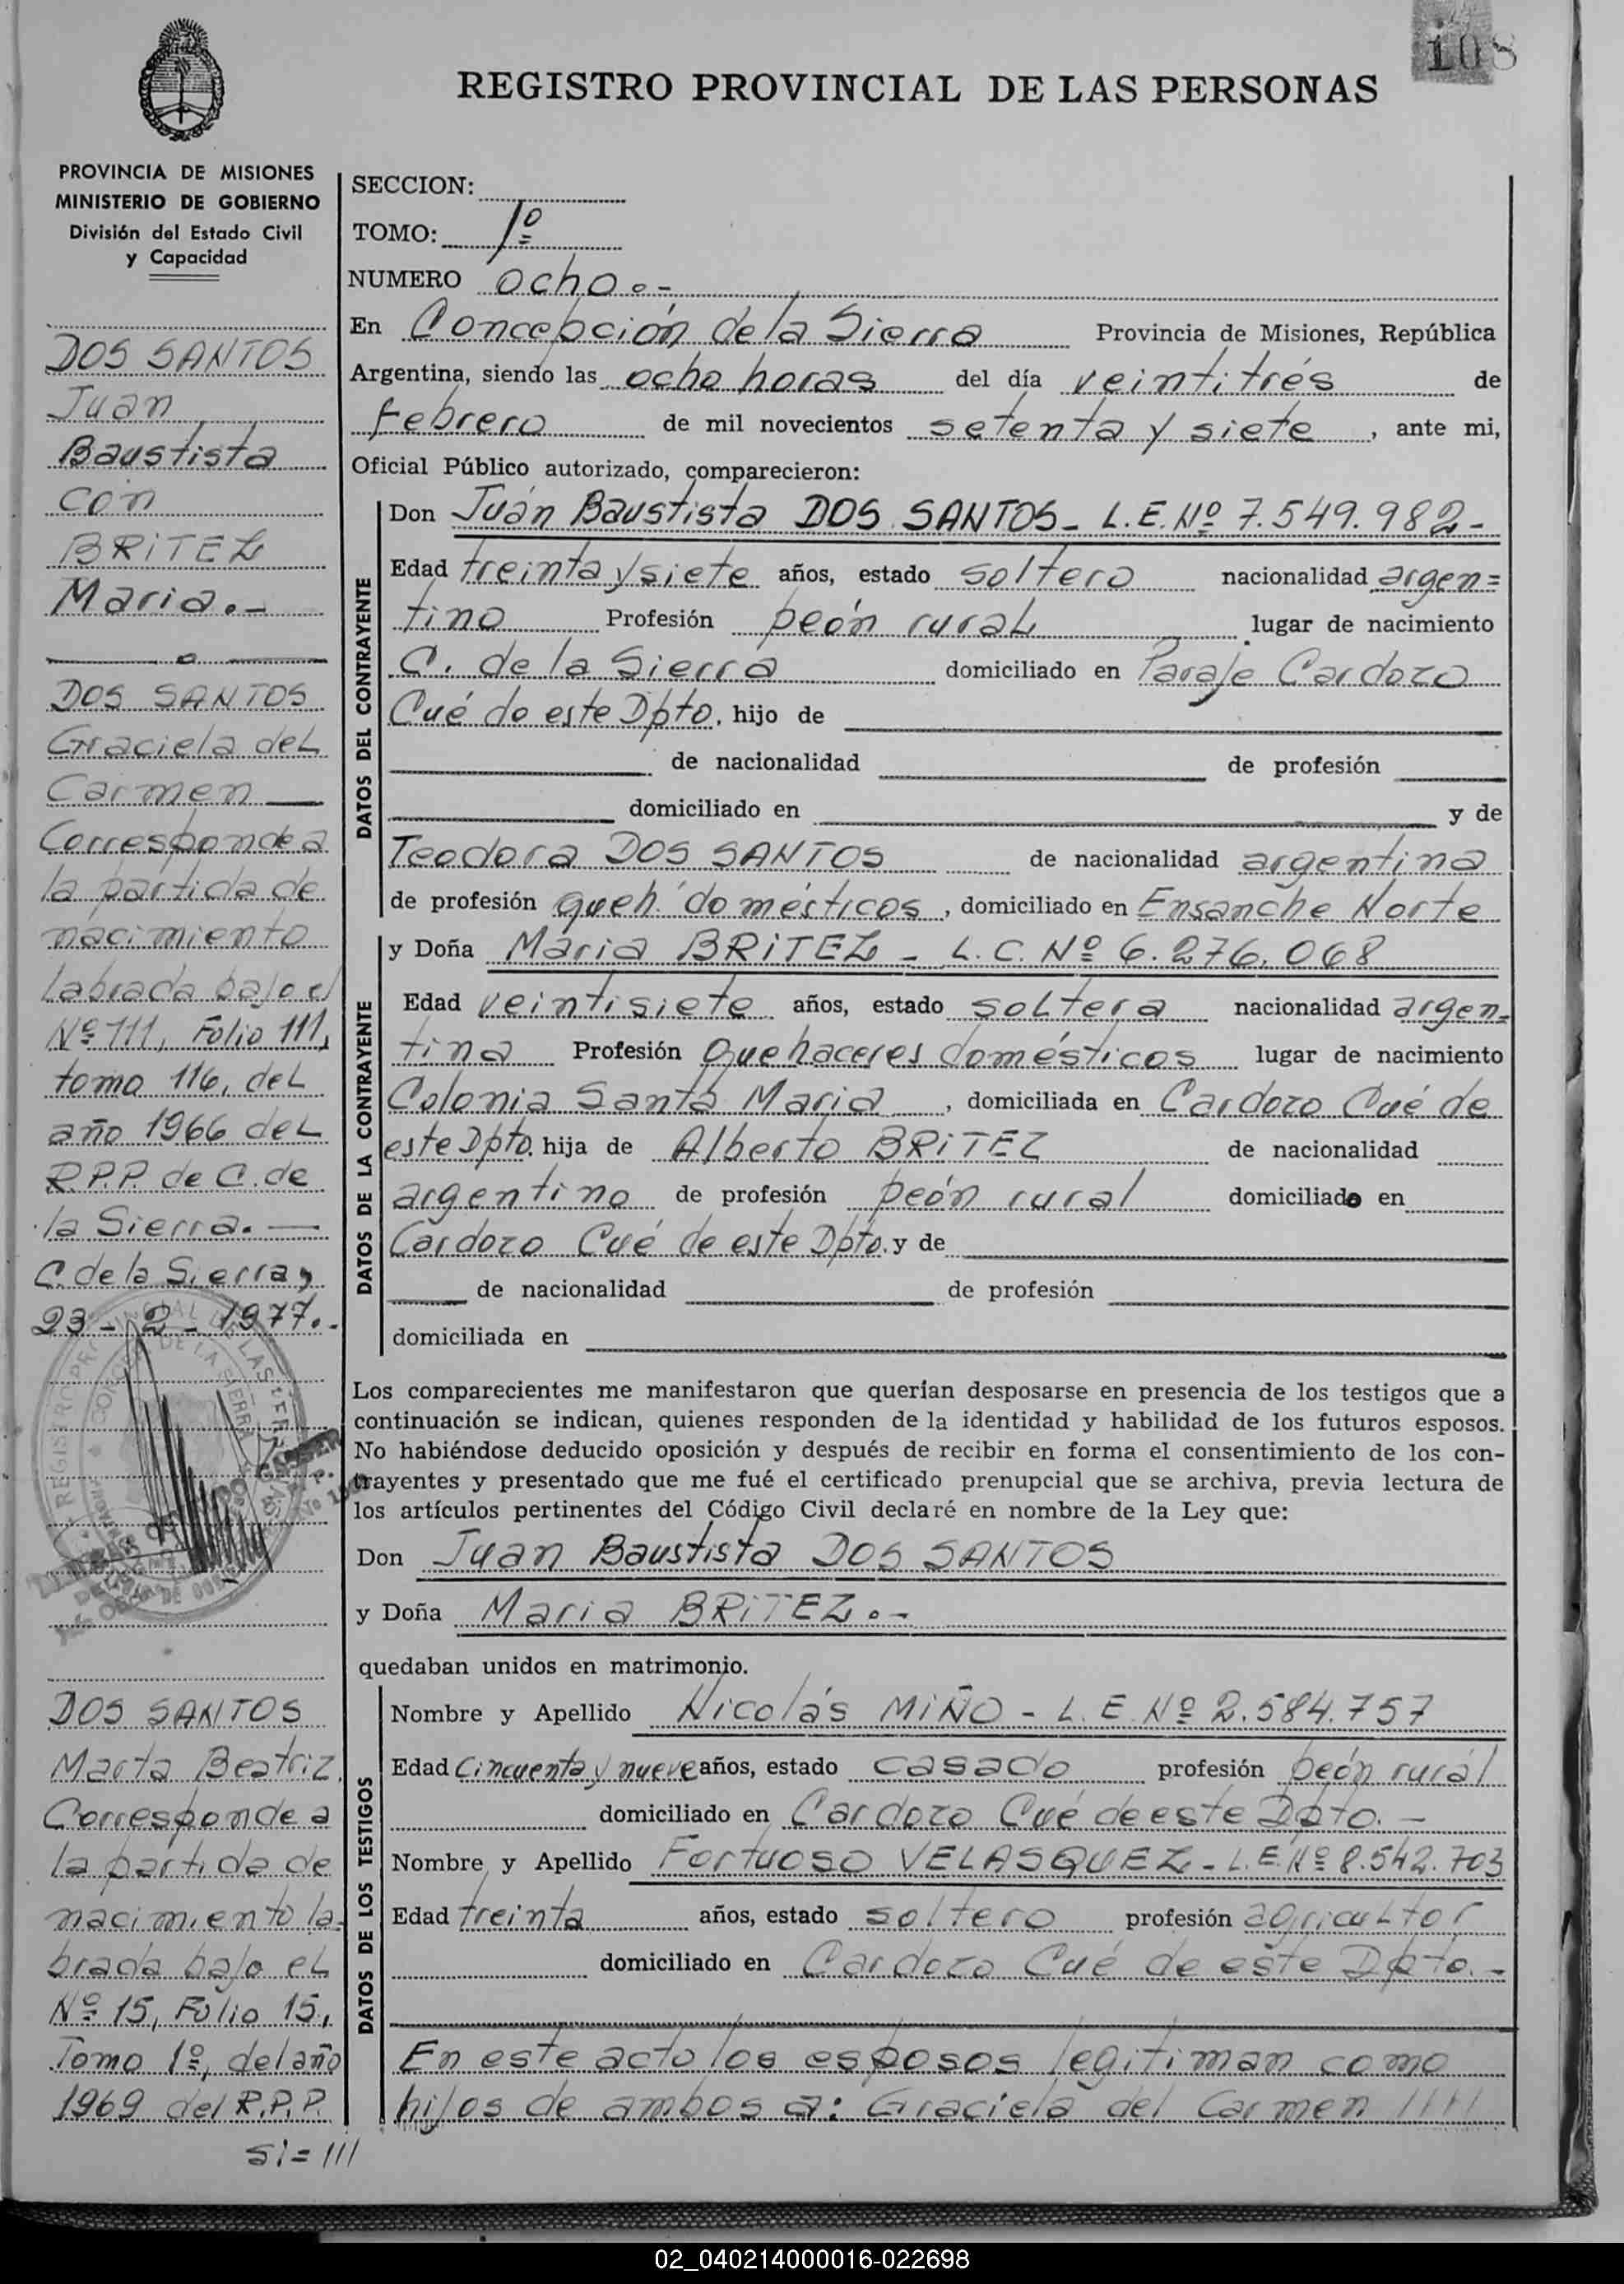 108
REGISTRO PROVINCIAL DE LAS PERSONAS
PROVINCIA DE MISIONES
MINISTERIO DE GOBIERNO
División del Estado Civil
y Capacidad
DOS SANTOS
Juan
Baustista
con
BRITEZ
Maria.-
DOS SANTOS
Graciela del
Carmen
Corresponde a
la partida de
nacimiento
labrada bajo el
Nº 111, Folio 111,
tomo 116, del
año 1966 del
R.P.P. de C. de
la Sierra.
C. de la Sierra,
23-2-1977.-
DOS SANTOS
Marta Beatriz
Corresponde a
la partida de
nacimiento la-
brada bajo el
Nº 15, Folio 15,
Tomo 1º, del año
1969 del R.P.P.
Si=///
SECCION:
TOMO: 1º
NUMERO ocho.-
En Concepción de la Sierra Provincia de Misiones, República
Argentina, siendo las ocho horas del día veintitrés de
febrero de mil novecientos setenta y siete, ante mi,
Oficial Público autorizado, comparecieron:
DATOS DEL CONTRAYENTE
Don Juán Baustista DOS SANTOS- L.E. Nº 7.549.982-
Edad treinta y siete años, estado soltero nacionalidad argen=
tino Profesión peón rural lugar de nacimiento
C. de la Sierra domiciliado en Paraje Cardozo
Cué de este Dpto, hijo de
de nacionalidad de profesión
domiciliado en y de
Teodora DOS SANTOS de nacionalidad argentina
de profesión queh. domésticos, domiciliado en Ensanche Norte
DATOS DE LA CONTRAYENTE
y Doña Maria BRITEZ - L.C. Nº 6.276.068
Edad veintisiete años, estado soltera nacionalidad argen-
tina Profesión Quehaceres domésticos lugar de nacimiento
Colonia Santa Maria, domiciliada en Cardozo Cué de
este Dpto. hija de Alberto BRITEZ de nacionalidad
argentino de profesión peón rural domiciliado en
Cardozo Cué de este Dpto. y de
de nacionalidad de profesión
domiciliada en
Los comparecientes me manifestaron que querían desposarse en presencia de los testigos que a
continuación se indican, quienes responden de la identidad y habilidad de los futuros esposos.
No habiéndose deducido oposición y después de recibir en forma el consentimiento de los con-
trayentes y presentado que me fué el certificado prenupcial que se archiva, previa lectura de
los artículos pertinentes del Código Civil declaré en nombre de la Ley que:
Don Juan Baustista DOS SANTOS
y Doña Maria BRITEZ.-
quedaban unidos en matrimonio.
DATOS DE LOS TESTIGOS
Nombre y Apellido Nicolás MIÑO - L.E. Nº 2.584.757
Edad Cincuenta y nueve años, estado casado profesión peón rural
domiciliado en Cardozo Cué de este Dpto.-
Nombre y Apellido Fortuoso VELASQUEZ - L.E. Nº 8.542.703
Edad treinta años, estado soltero profesión agricultor
domiciliado en Cardozo Cué de este Dpto.-
En este acto los esposos legitiman como
hijos de ambos a: Graciela del Carmen ////
02_040214000016-022698